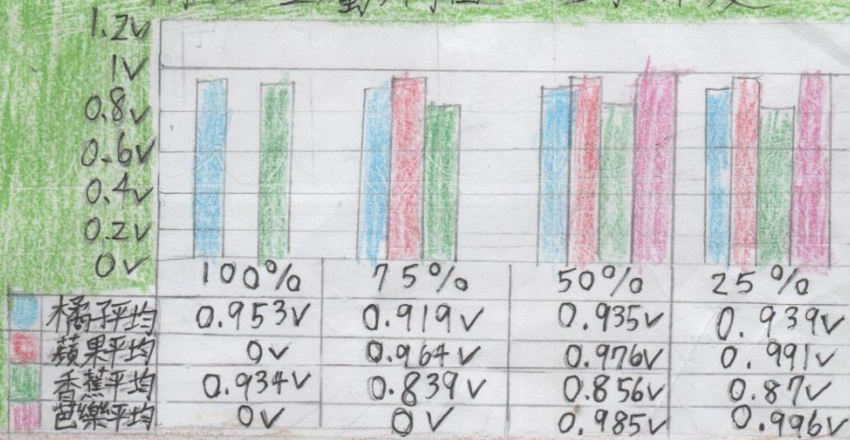 1.2v
1v
0.8v
0.6v
0.4v
0.2v
0v
100% 75% 50% 25%
橘子平均 0.953v 0.919v 0.935v 0.939v
蘋果平均 0v 0.964v 0.976v 0.991v
香蕉平均 0.934v 0.839v 0.856v 0.87v
芭樂平均 0v 0v 0.985v 0.996v